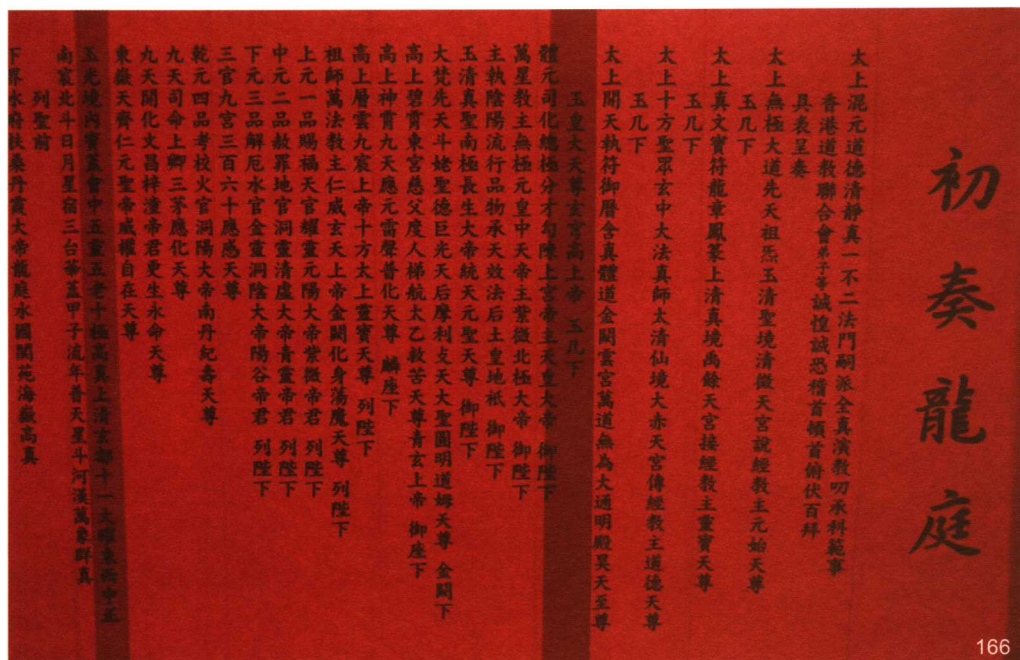 初奏龍庭
太上混元道德清靜真一不二法門嗣派全真演教叨承科範事
香港道教聯合會弟子等誠惶誠恐稽首頓首俯伏百拜
具表呈奏
太上無極大道先天祖炁玉清聖境清微天宮說經教主元始天尊
玉几下
太上真文寶符龍章鳳篆上清真境禹餘天宮接經教主靈寶天尊
玉几下
太上十方聖眾玄中大法真師太清仙境大赤天宮傳經教主道德天尊
玉几下
太上開天執符御曆含真體道金闕雲宮萬道無為大通明殿昊天至尊
玉皇大天尊玄穹高上帝 玉几下
體元司化總極分才勾陳上宮帝主天皇大帝 御陛下
萬星教主無極元皇中天帝主紫微北極大帝 御陛下
主執陰陽流行品物承天效法后土皇地祇 御陛下
玉清真聖南極長生大帝統天元聖天尊 御陛下
大梵先天斗姥聖德巨光天后摩利攴天大聖圓明道姆天尊 金闕下
高上碧霄東宮慈父度人梯航太乙救苦天尊青玄上帝 御座下
高上神霄九天應元雷聲普化天尊 麟座下
高上層雲九宸上帝十方太上靈寶天尊 列陛下
祖師萬法教主仁威玄天上帝金闕化身蕩魔天尊 列陛下
上元一品賜福天官耀靈元陽大帝紫微帝君 列陛下
中元二品赦罪地官洞靈清虛大帝青靈帝君 列陛下
下元三品解厄水官金靈洞陰大帝陽谷帝君 列陛下
三官九宮三百六十應感天尊
乾元四品考校火官洞陽大帝南丹紀壽天尊
九天司命上卿三茅應化天尊
九天開化文昌梓潼帝君更生永命天尊
東嶽天齊仁元聖帝威權自在天尊
玉光境內寶蓋會中五靈五老十極高真上清玄都十一大曜東西中正
南宸北斗日月星宿三台華蓋甲子流年普天星斗河漢萬象群真
列聖前
下界水府扶桑丹霞大帝龍庭水國閬苑海嶽高真
166